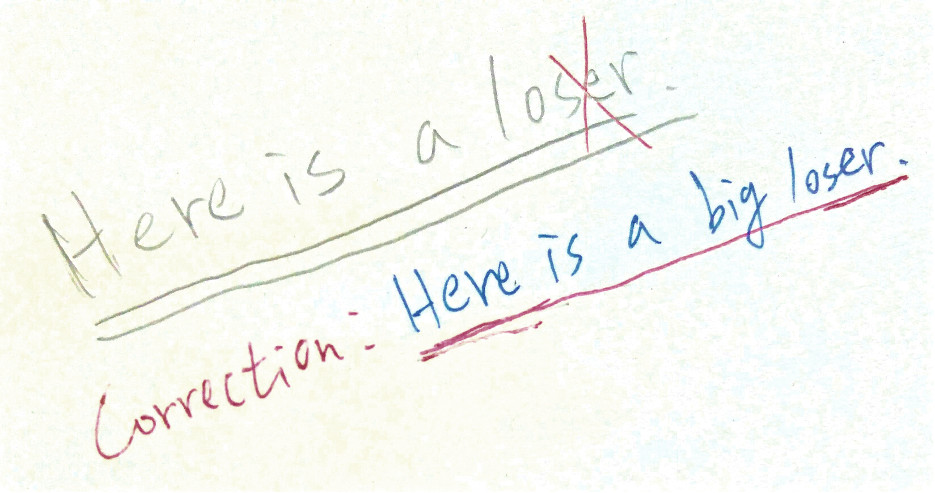 Here is a loser.
Correction: Here is a big loser.